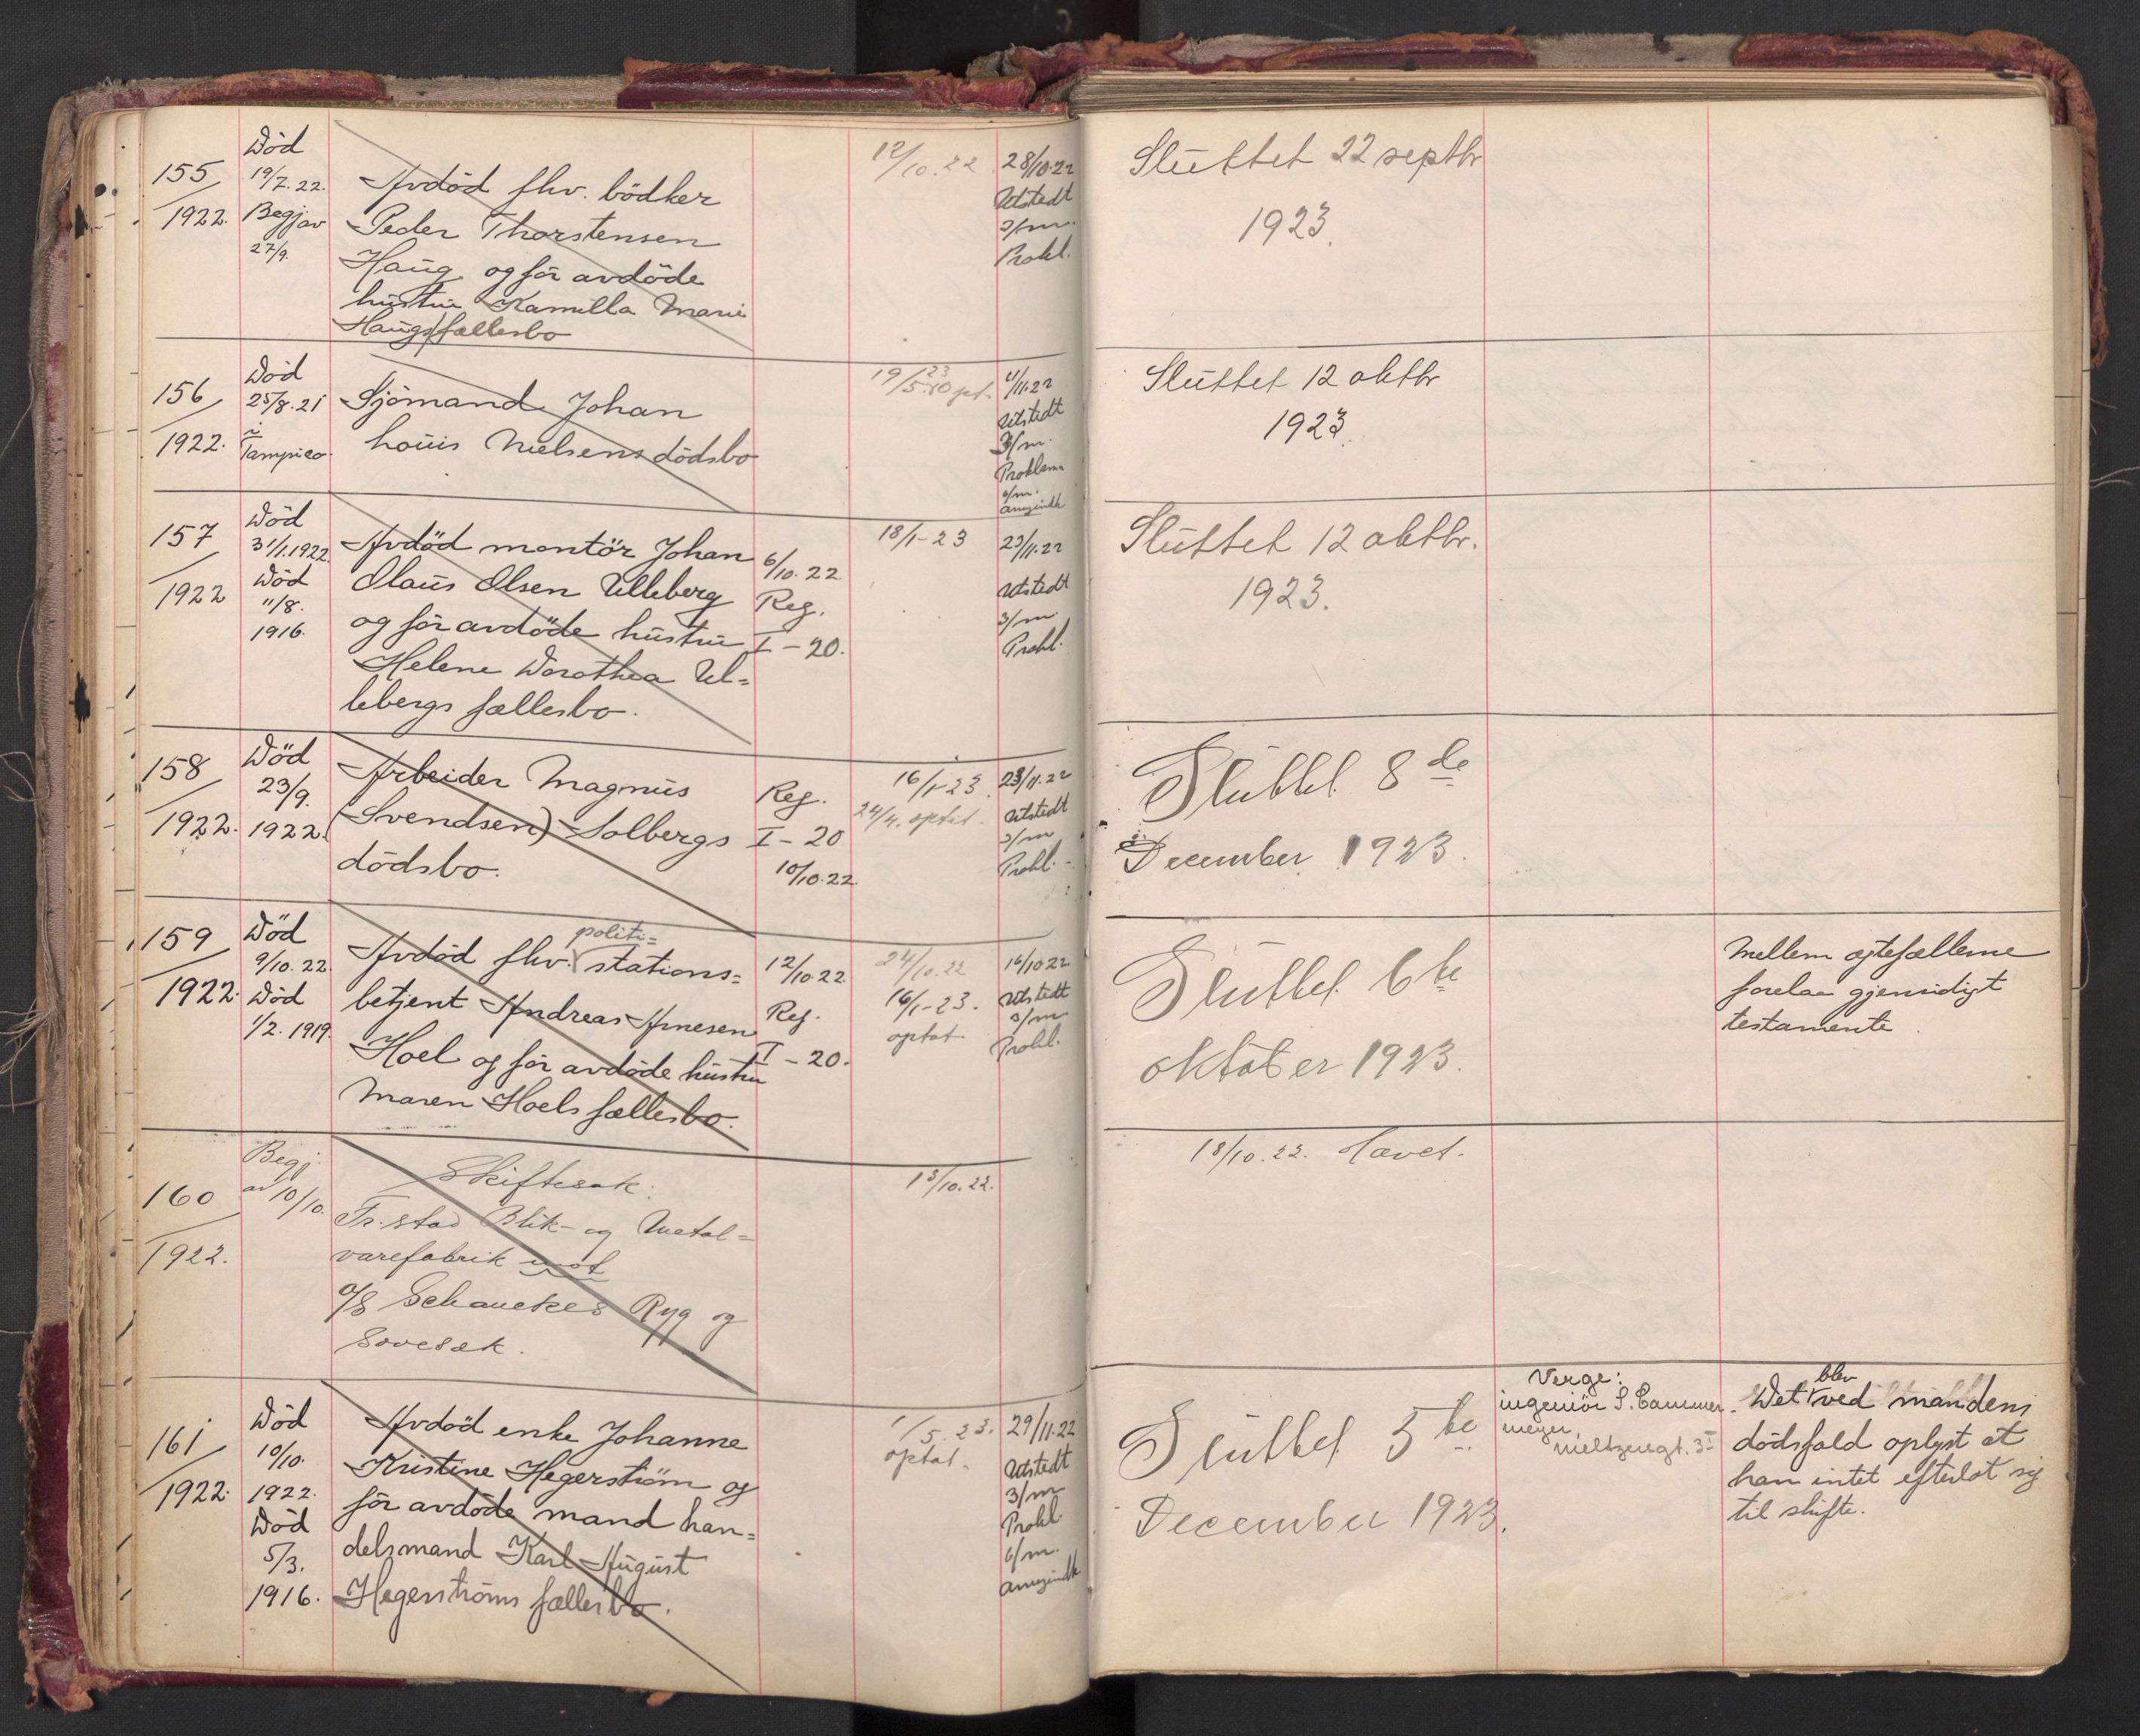 155
1922.
Död
19/7.22.
Begj av
27/9.
Avdöd fhv. bödker
Peder Thorstensen
Haug og för avdöde
hustru Kamilla Marie
Haugs fællesbo
12/10.22
28/10.22
Utstedt
3/m.
Prokl.
Sluttet 22 septbr
1923.
156
1922.
Död
25/8.21
i
Tampico
Sjömand Johan
Louis Nielsens dödsbo
19/5.23 opt.
4/11.22
Utstedt
3/m.
Proklama
6/m.
Sluttet 12 oktbr
1923.
157
1922
Död
31/1.1922.
Död
11/8.
1916.
Avdöd montör Johan
Olaus Olsen Ulleberg
og för avdöde hustru
Helene Dorothea Ul=
lebergs fællesbo.
6/10.22
Reg.
I - 20.
18/1-23
23/11.22
Utstedt
3/m.
Prokl.
Sluttet 12 oktbr.
1923.
158
1922.
Död
23/9.
1922.
Arbeider Magnus
(Svendsen) Solbergs
dödsbo.
Reg.
I - 20
10/10.22.
16/1-23.
24/4. optat.
23/11.22
Utstedt
3/m
Prokl.
Sluttet 8 de
December 1923.
159
1922.
Död
9/10.22.
Död
1/2.1919.
Avdöd fhv. politi=
stations=
betjent Andreas Arnesen
Hoel og för avdöde hustru
Maren Hoels fællesbo.
12/10.22
Reg.
I - 20.
24/10.22
16/1-23.
optat
16/10.22
Utstedt
3/m
Prokl.
Sluttet 6te
oktober 1923.
Mellem ægtefællerne
forelaa gjensidigt
testamente.
160
1922.
Begj.
av 10/10.
Skiftesak:
Fr.stad Blik- og Metal=
varefabrik mot
a/s Schauckes Ryg og
Sovesæk.
13/10.22.
18/10.22. Hævet.
161
1922.
Död
10/10.
1922.
Död
5/3.
1916.
Avdöd enke Johanne
Kristine Hegerström og
för avdöde mand han=
delsmand Karl August
Hegerströms fællesbo.
1/5.23.
optat.
29/11.22
Utstedt
3/m
Prokl.
6/m.
Sluttet 5te
December 1923.
Verge:
ingeniör S.
Det blev ved mandens
dödsfald oplyst at
han intet efterlot sig
til skifte.